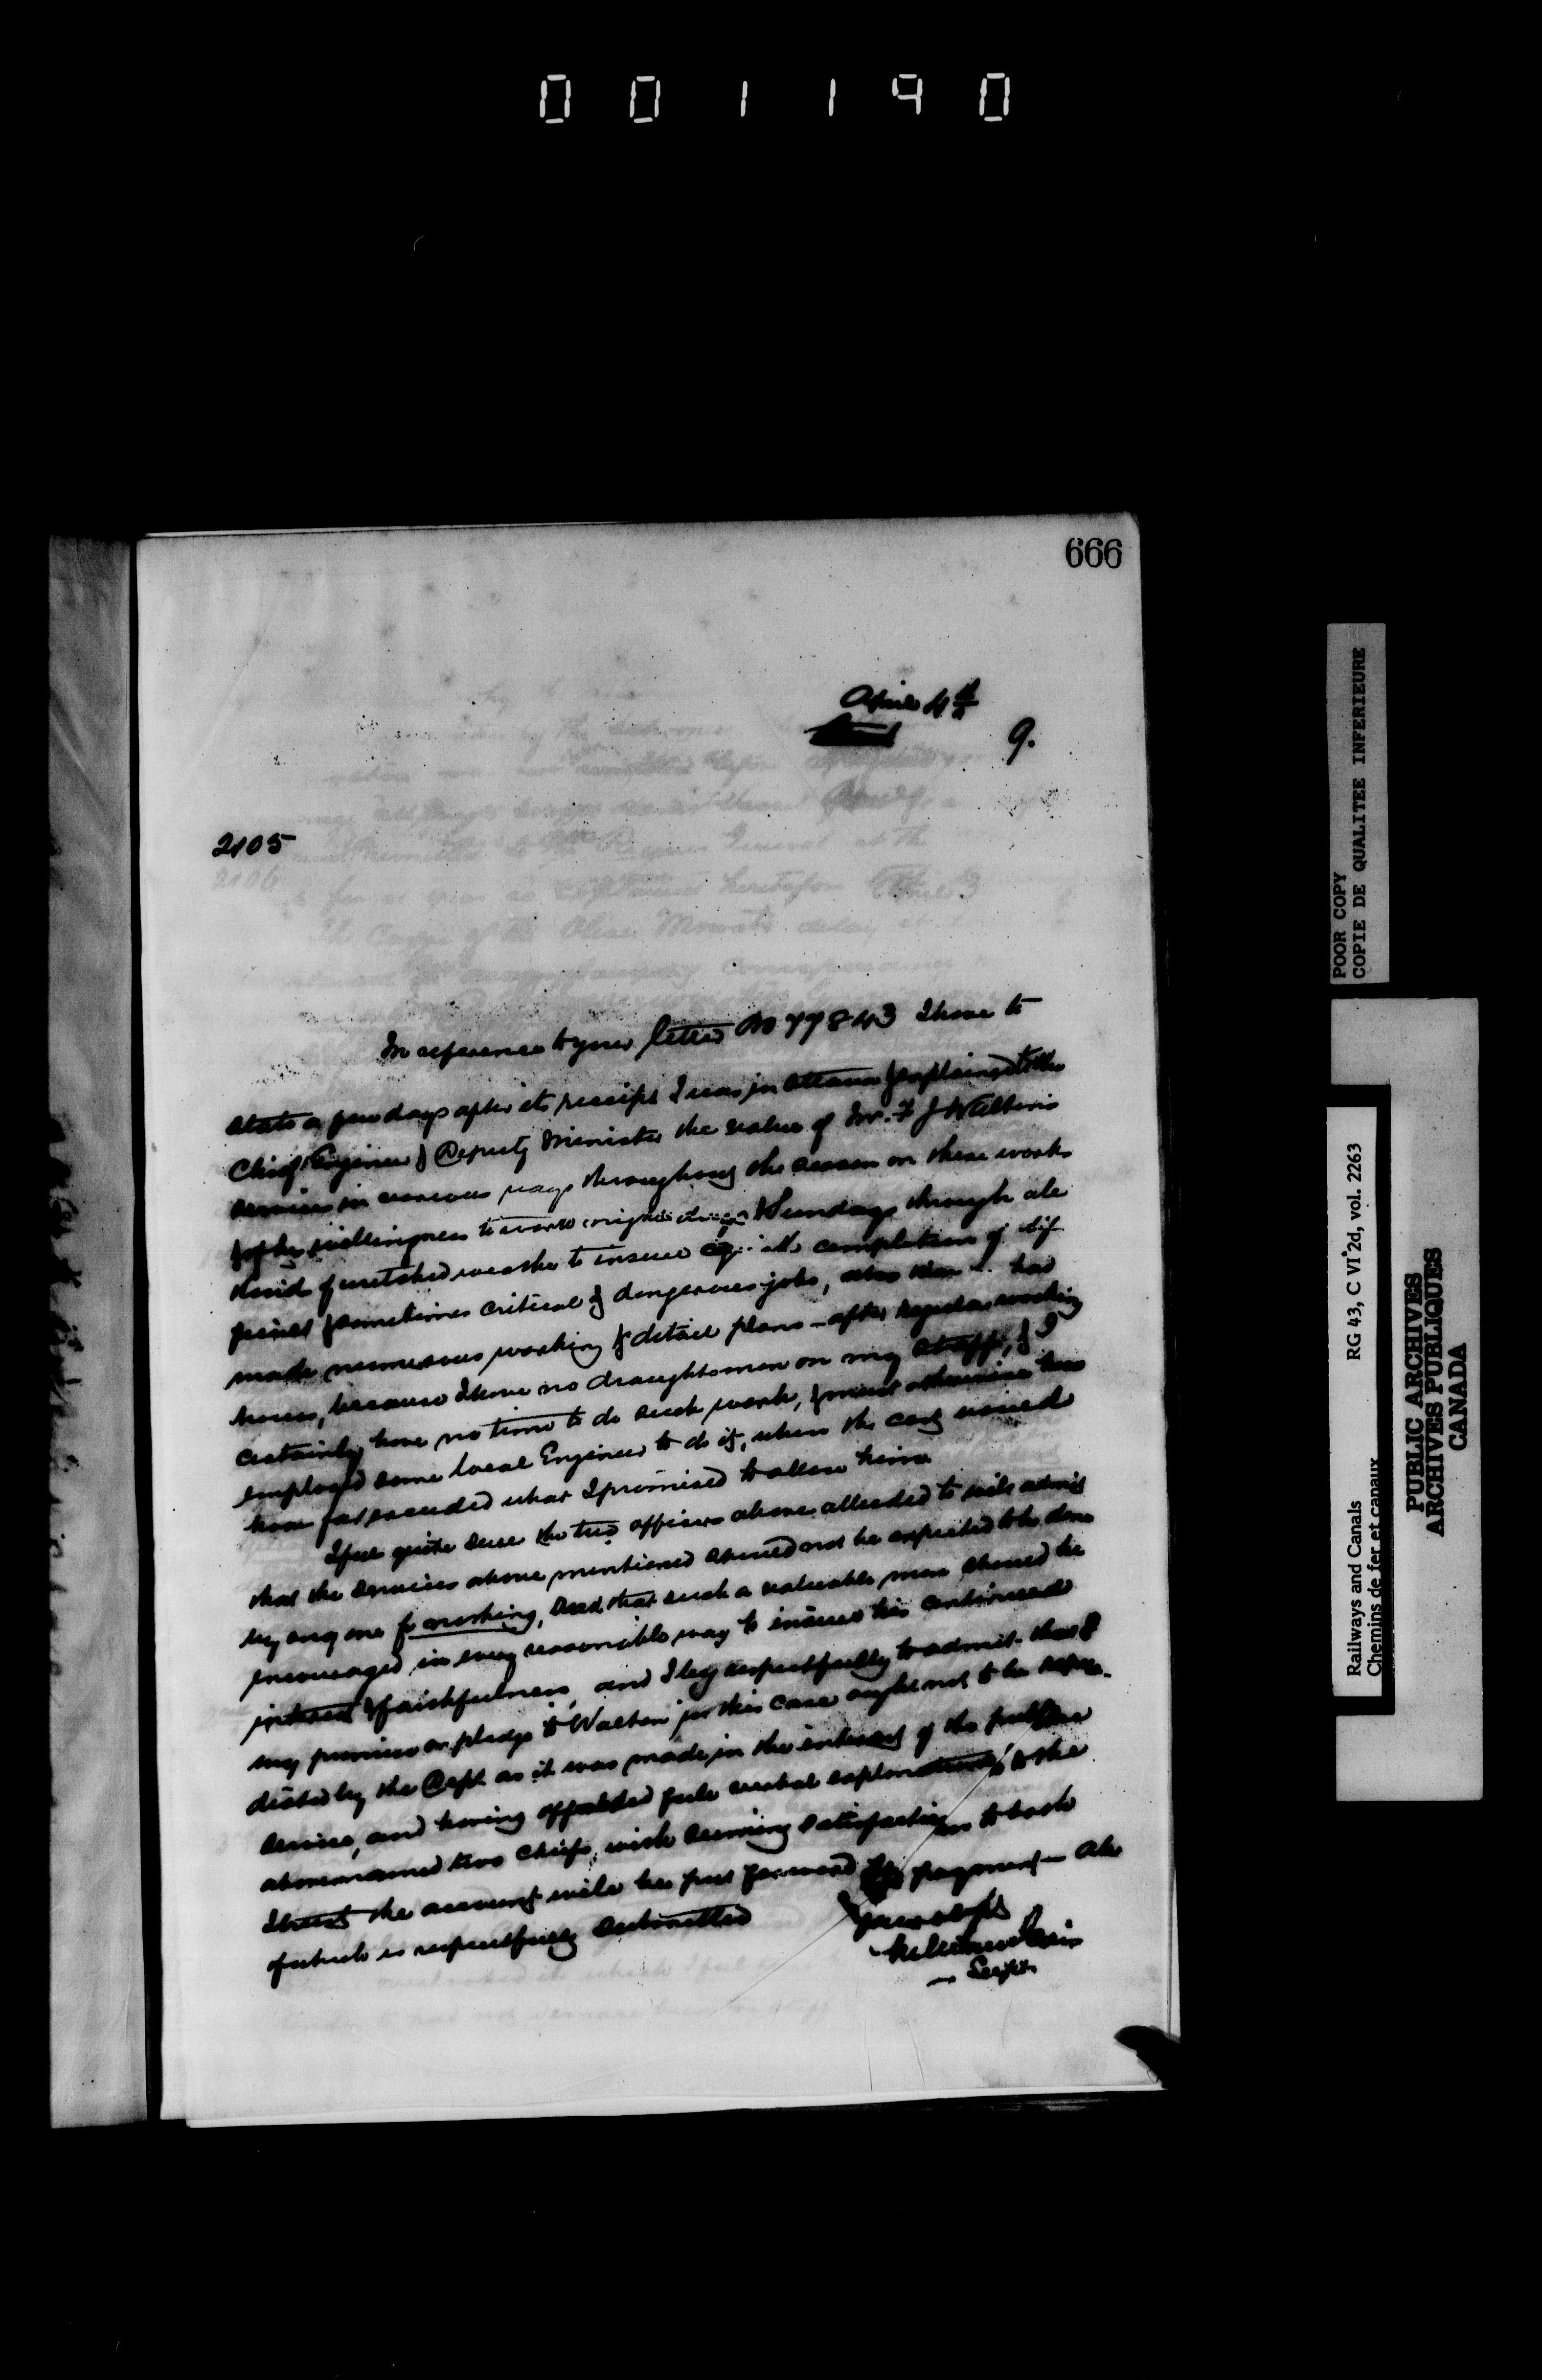 001190
666
April 4th
9.
2105
In reference to your letter No 77843 I have to
state a few days after its receipt I was in Ottawa & explained to the
Chief Engineer & Deputy Minister the value of Mr. F J Walton's
services in various ways throughout the season on these works
& of his willingness to work nights & Sundays through all
kinds of wretched weather to insure the completion of dif-
ficult & sometimes critical & dangerous jobs, also that he had
made numerous working & detail plans - after regular working
hours, because I have no draughtsman on my staff, & I
certainly have no time to do such work, & must otherwise have
employed some local Engineer to do it, when the cost would
have far exceeded what I promised to allow him.
I feel quite sure the two officers above alluded to will admit
that the services above mentioned should not be expected to be done
by any one for nothing, and that such a valuable man should be
encouraged in every reasonable way to insure his continued
interest & faithfulness, and I beg respectfully to admit that
my promise or pledge to Walton in this case ought not to be repu-
diated by the Dept. as it was made in the interest of the public
service, and having afforded full verbal explanations to the
abovenamed two chiefs, with seeming satisfaction to both
I trust the account will be put forward for payment - All
of which is respectfully submitted
Yours obdt
Supt
POOR COPY
COPIE DE QUALITEE INFERIEURE
Railways and Canals RG 43, C VI 2d, vol. 2263
Chemins de fer et canaux
PUBLIC ARCHIVES
ARCHIVES PUBLIQUES
CANADA